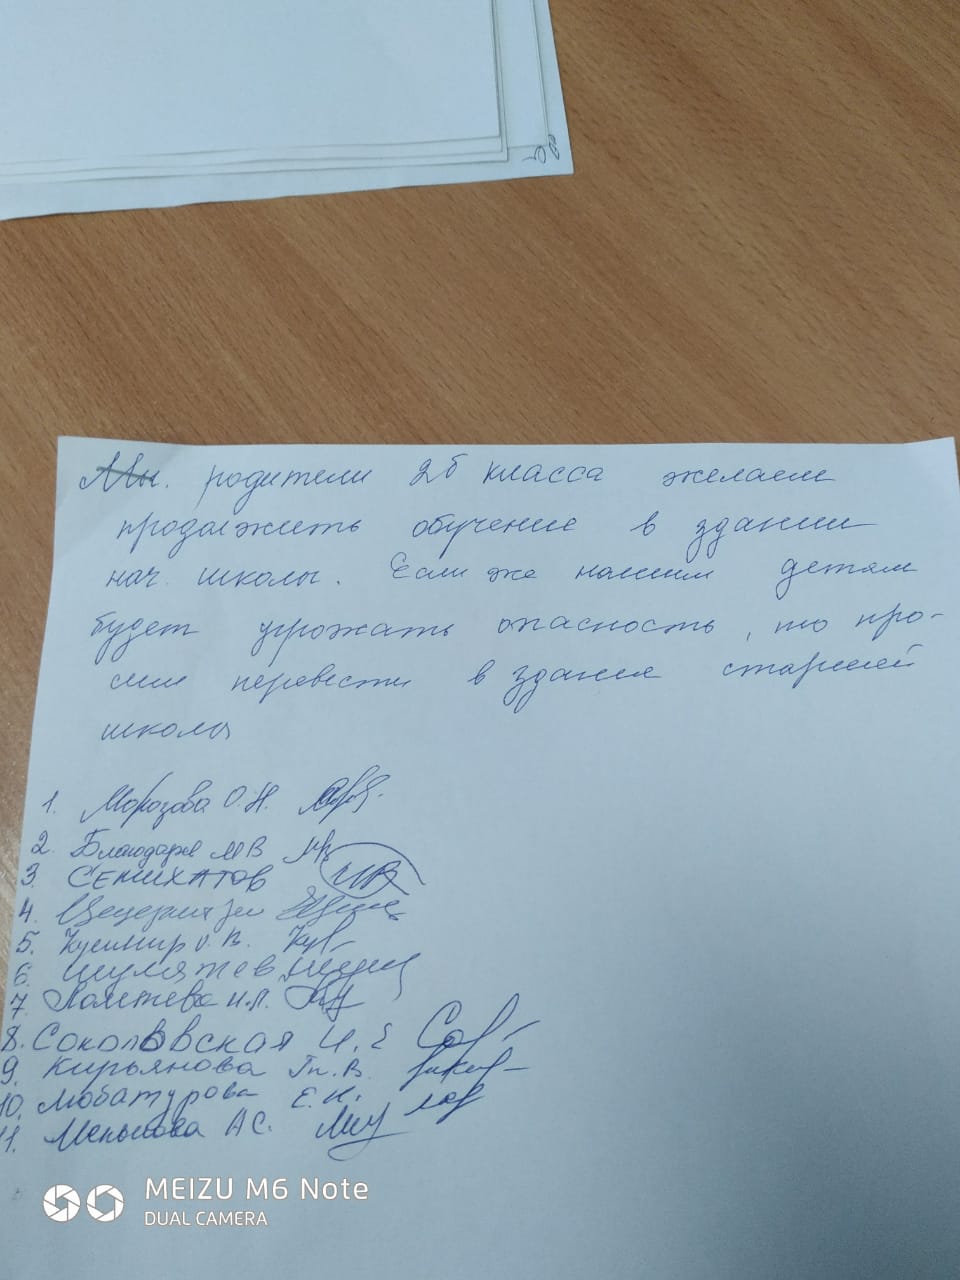 Мы. родители 2б класса желаем
продолжить обучение в здании
нач. школы. Если же нашим детям
будет угрожать опасность, то про-
сим перевести в здания старшей
школы
1. Морозова О.Н.
2. Благодаря МВ
3. СЕМИХАТОВ
4.
5. Кушнир О.В.
6. Шулятев
7.
8. Соколовская И.Е
9. Кирьянова Т.В.
10. Лобатурова Е.Н.
11. Меньшова АС.
MEIZU M6 Note
DUAL CAMERA